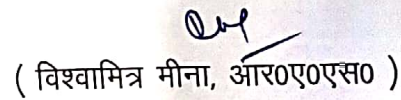 ( विश्वामित्र मीना, आर०ए०एस० )